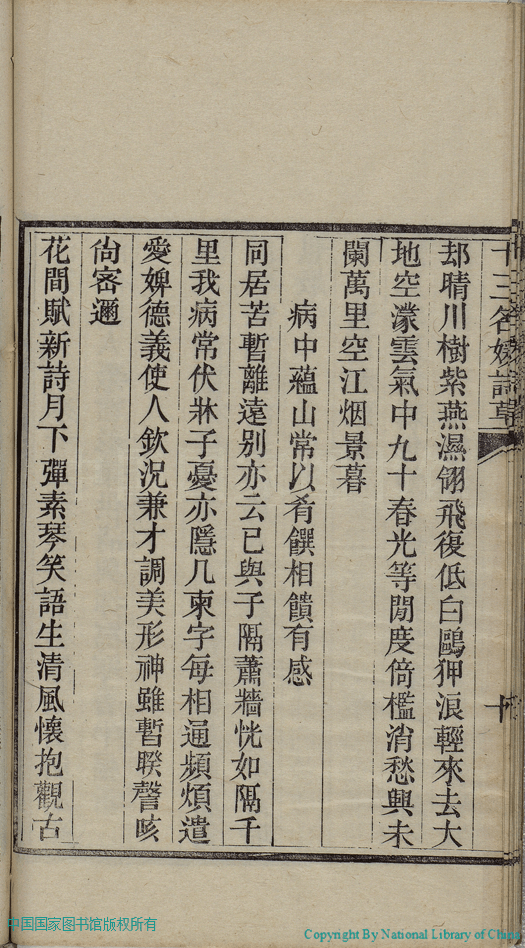 十三名媛詩草
十
却晴川樹紫燕濕翎飛復低白鷗狎浪輕來去大
地空濛雲氣中九十春光等閒度倚檻消愁興未
闌萬里空江烟景暮
病中蘊山常以肴饌相饋有感
同居苦暫離遠別亦云已與子隔蕭牆恍如隔千
里我病常伏牀子憂亦隱几柬字每相通頻煩遣
愛婢德義使人欽況兼才調美形神雖暫暌謦咳
尙密邇
花間賦新詩月下彈素琴笑語生清風懷抱觀古
中国国家图书馆版权所有
Copyright By National Library of China